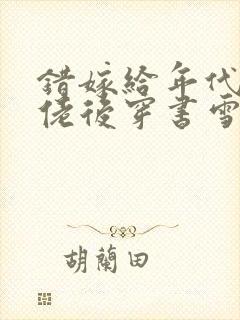 錯嫁給年代
佬後穿書雪
胡蘭田